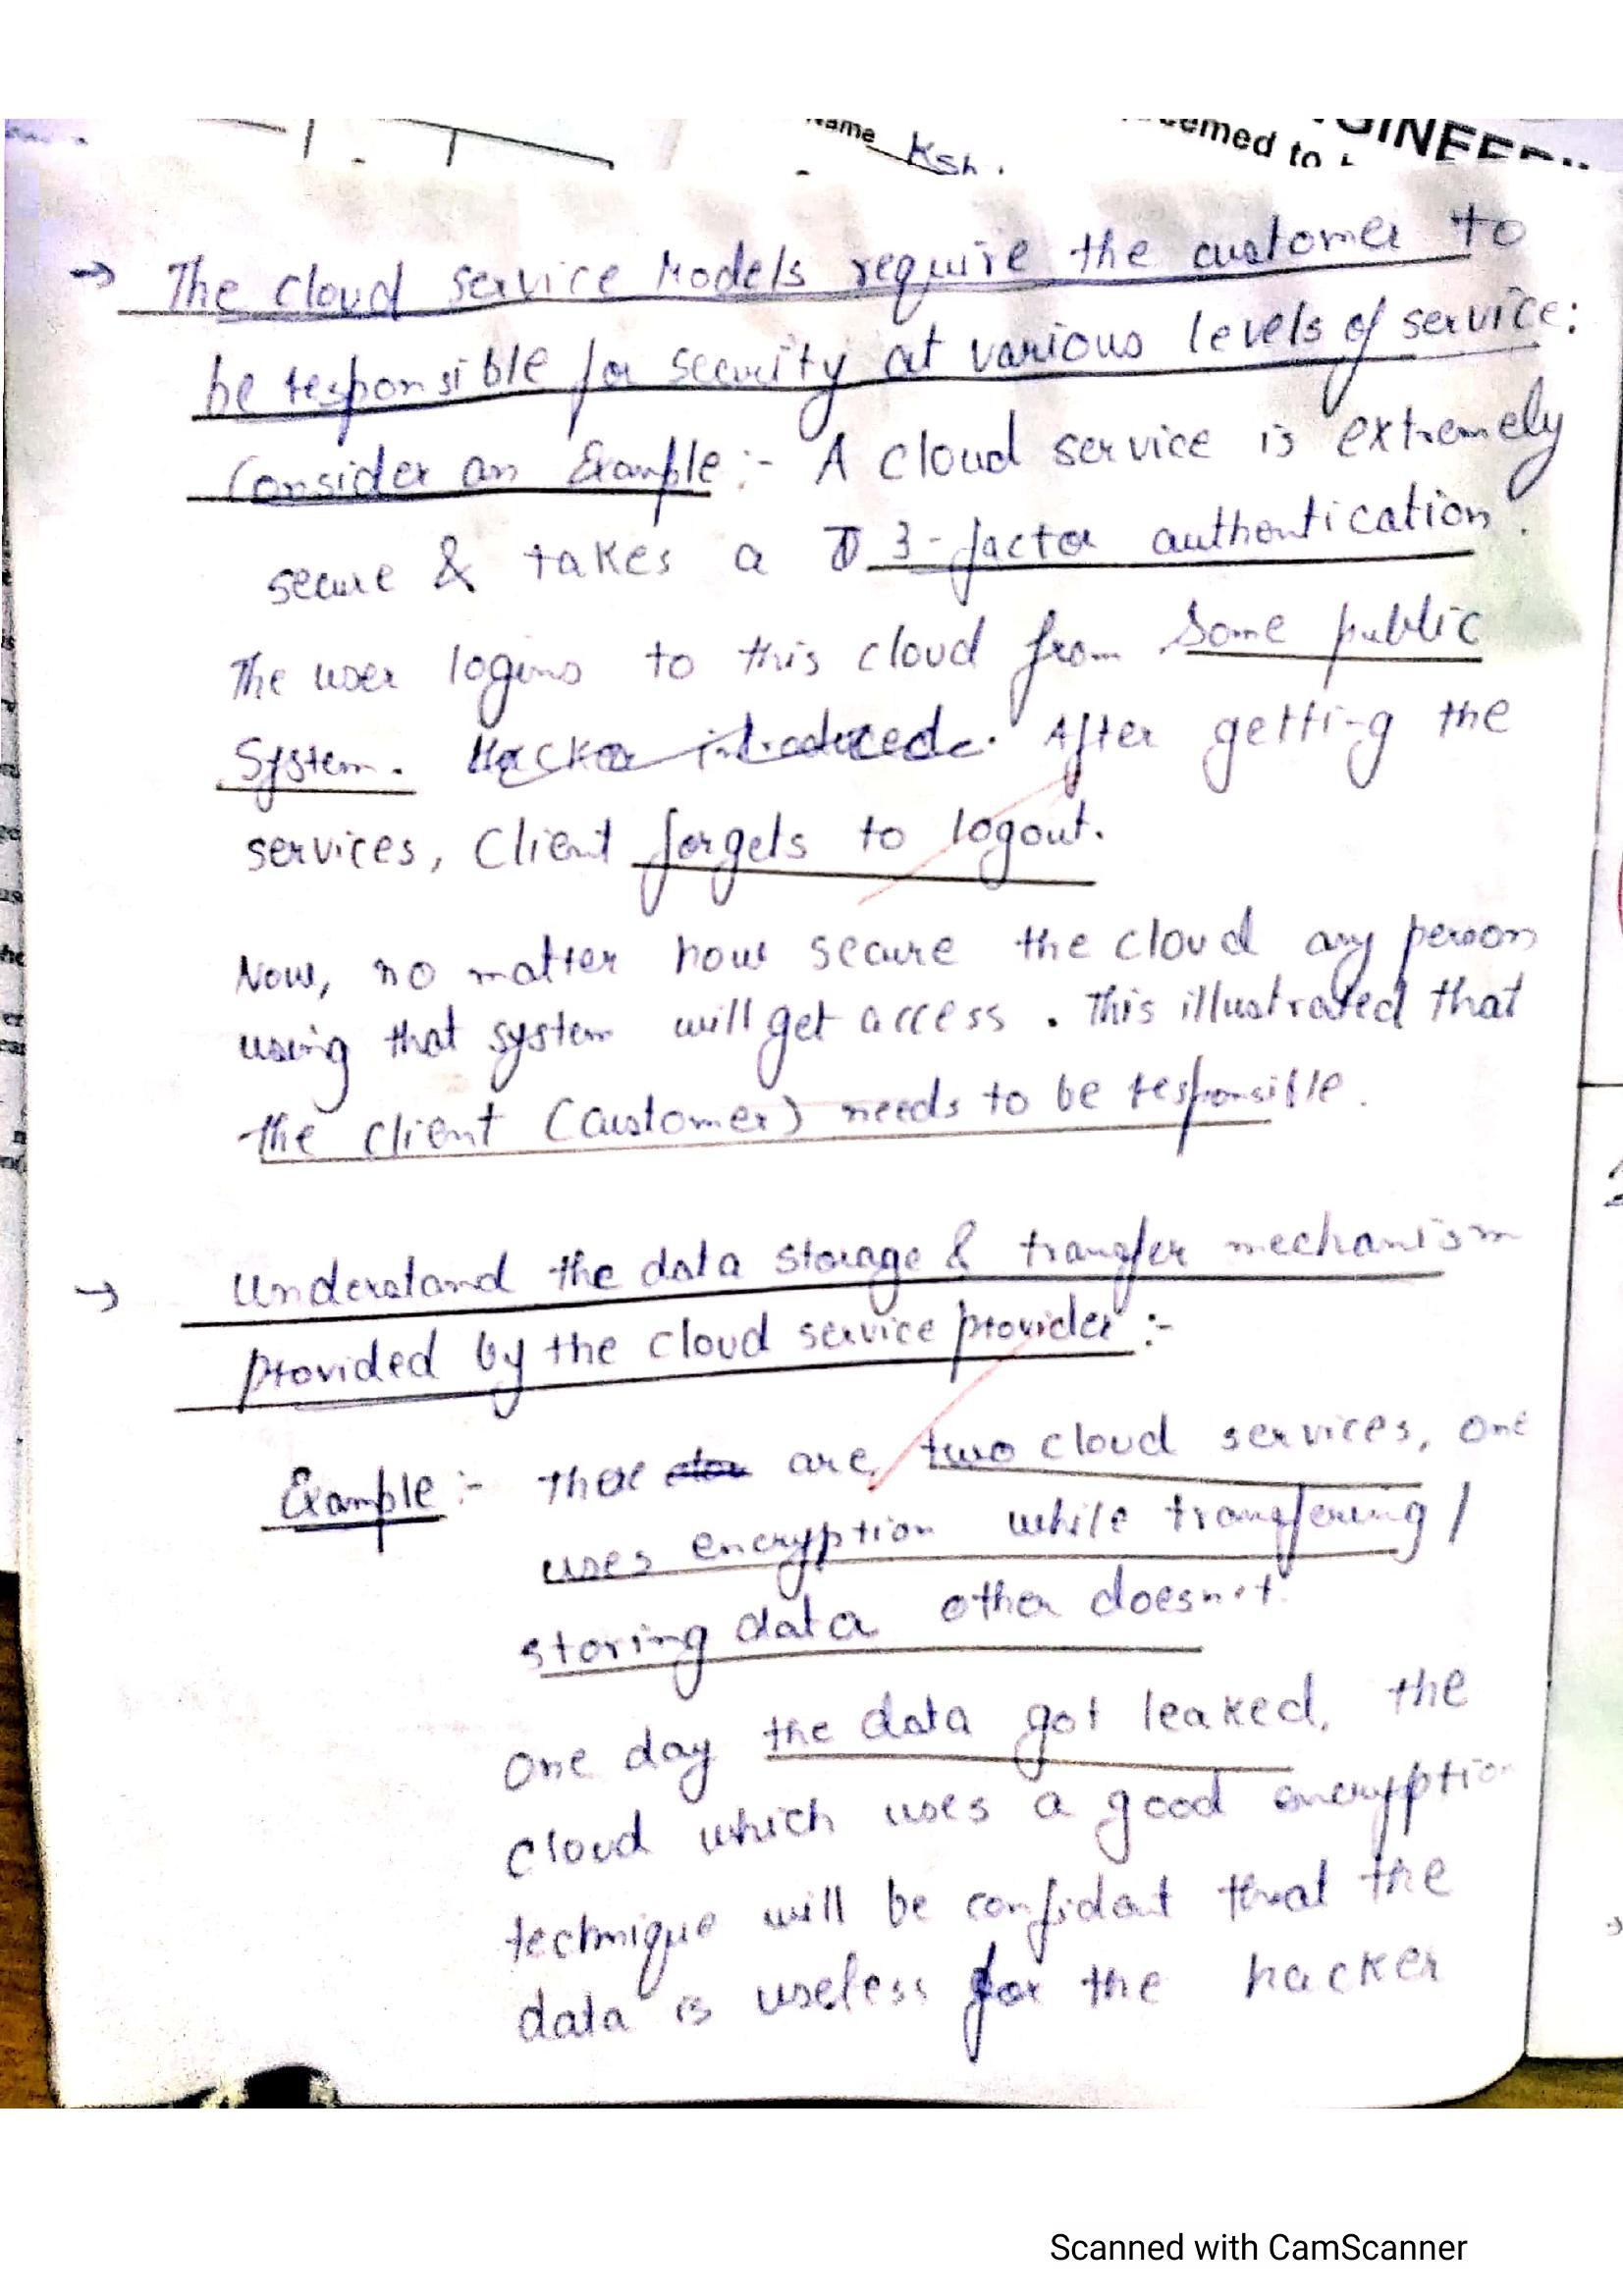 Name Ksh.
eemed to
GINEER
→ The cloud service Models require the customer to
be responsible for security at various levels of service:
Consider an Example :- A cloud service is extremely
secure & takes a 3-factor authentication.
The user logins to this cloud from some public
System. Hacker introduced. After getting the
services, Client forgets to logout.
Now, no matter how secure the cloud any person
using that system will get access. This illustrated that
the client (customer) needs to be responsible.
→ Understand the data storage & transfer mechanism
provided by the cloud service provider :-
Example :- there are two cloud services, one
uses encryption while transfering/
storing data other doesn't.
One day the data got leaked, the
cloud which uses a good encryption
technique will be confidant that the
data is useless for the hacker
Scanned with CamScanner